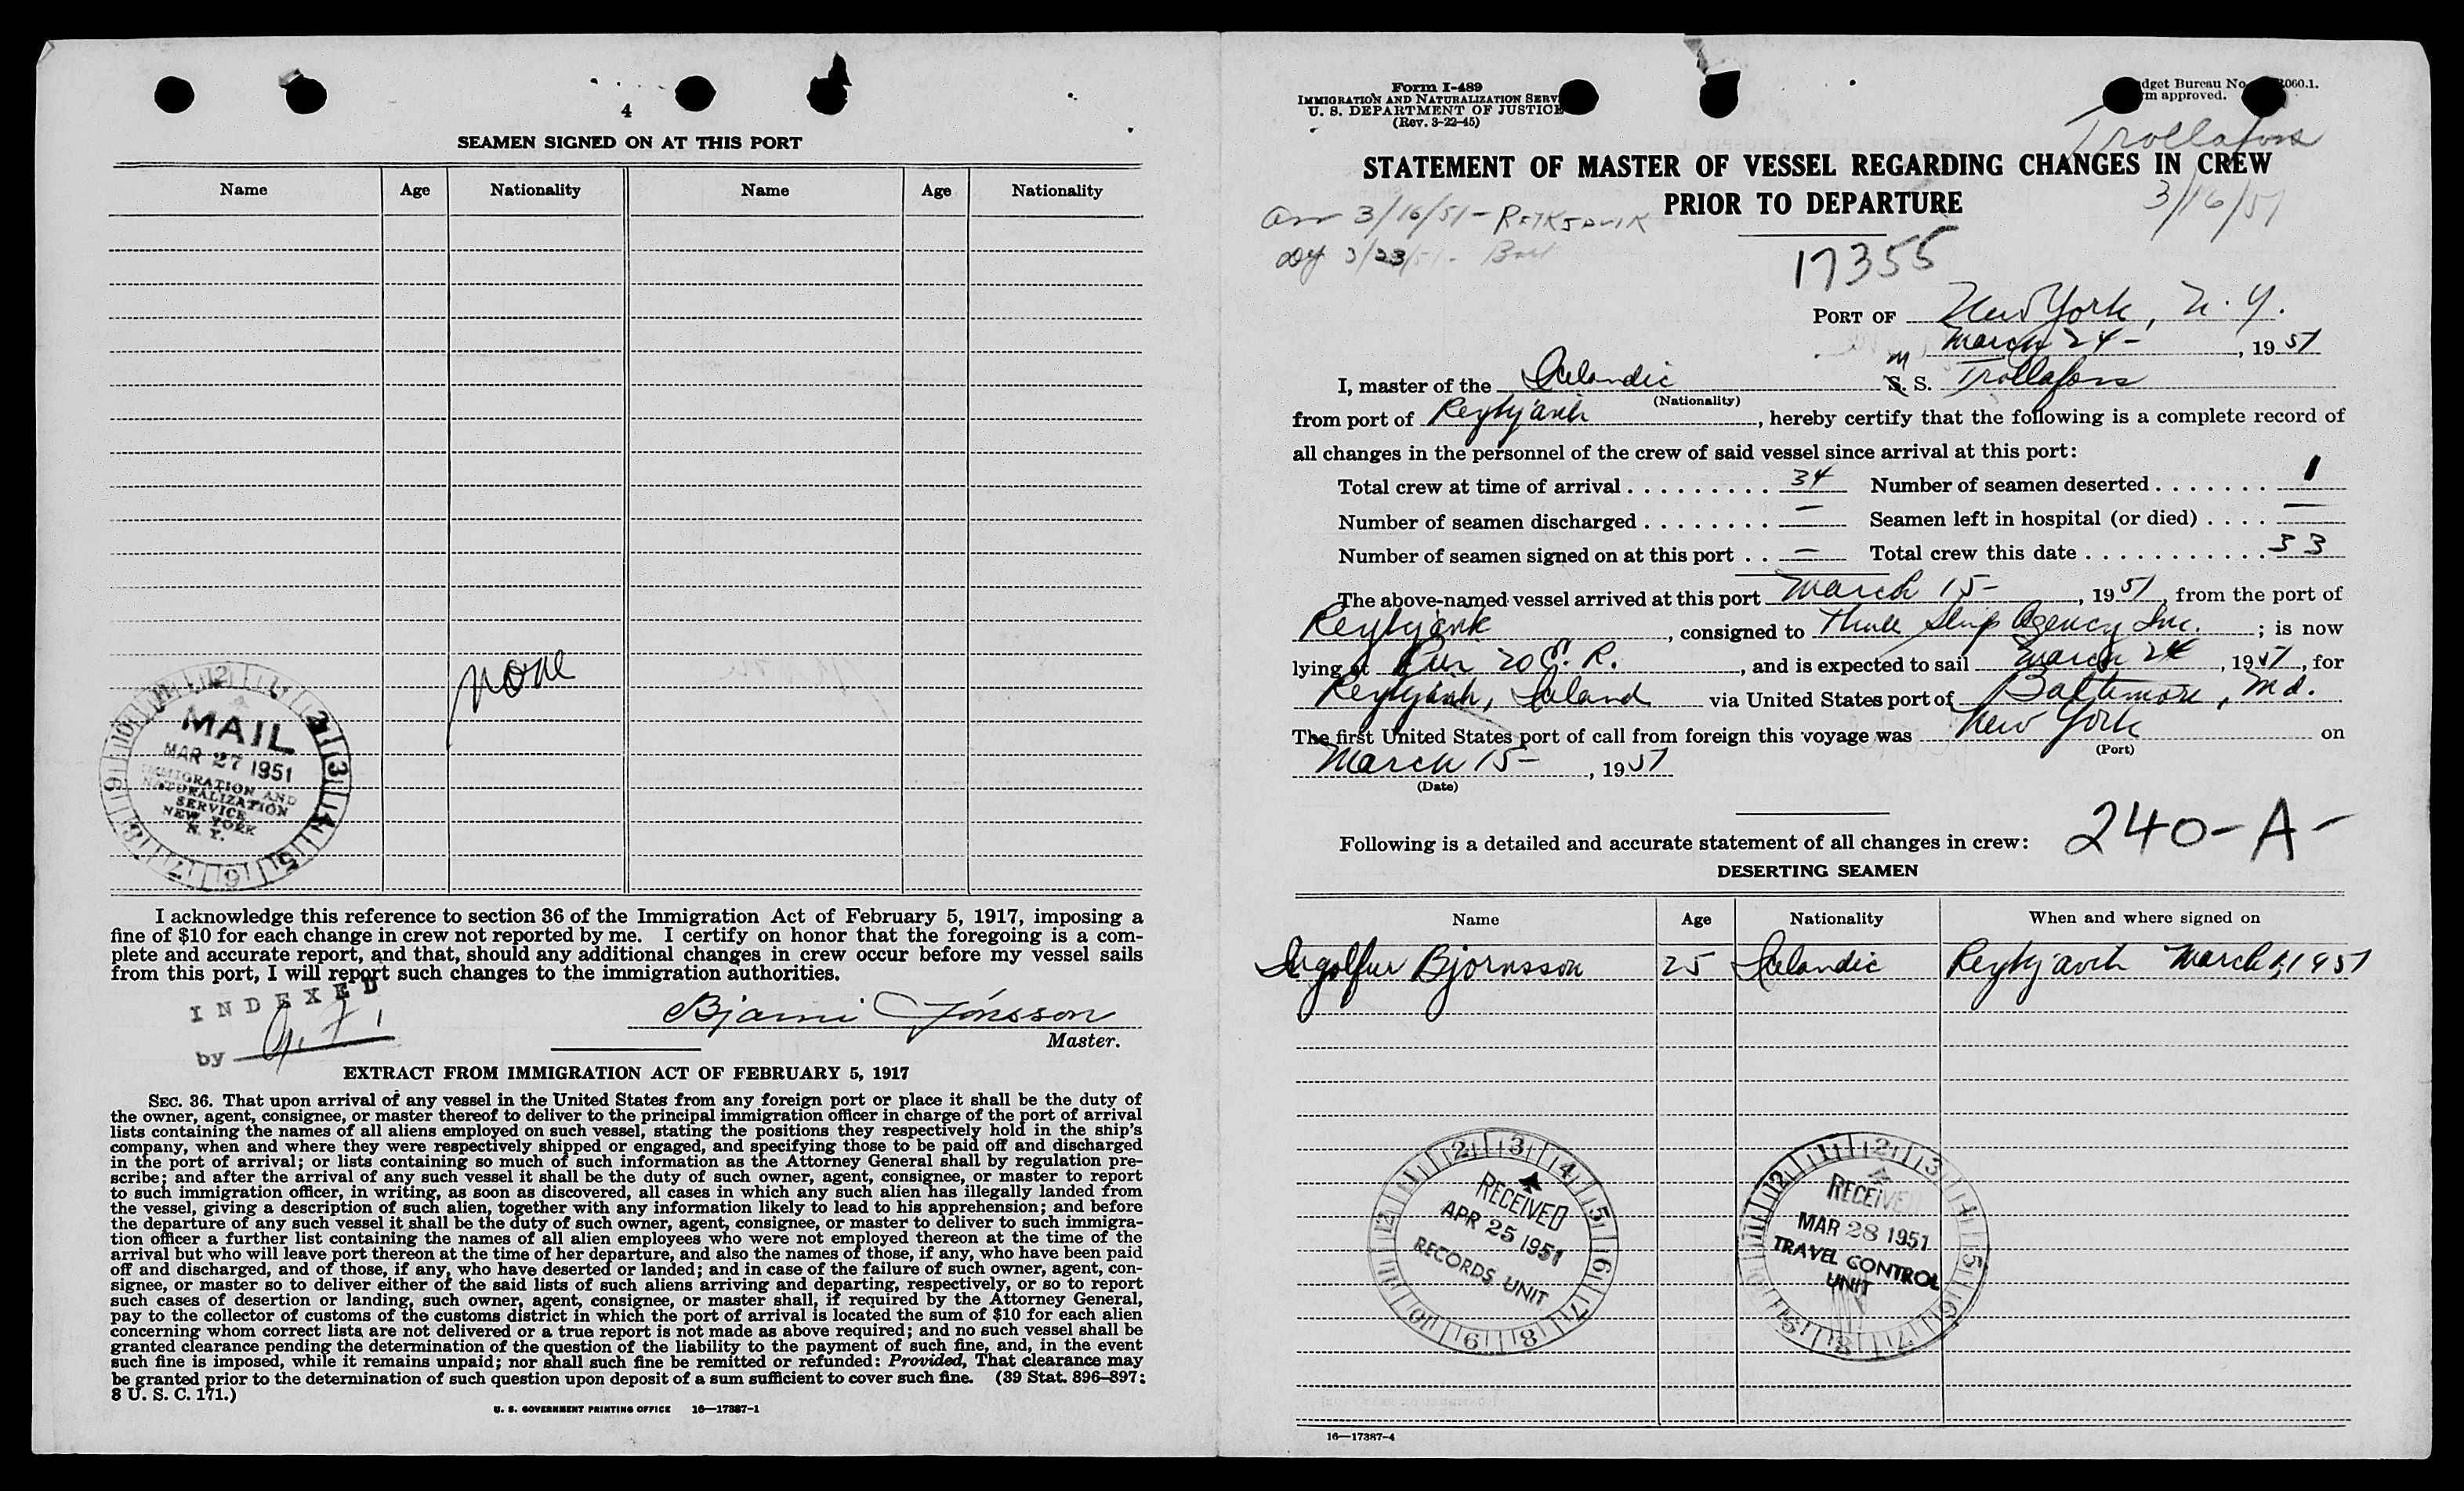 4
SEAMEN SIGNED ON AT THIS PORT
Name Age Nationality Name Age Nationality
none
MAIL
MAR 27 1951
IMMIGRATION AND
NATURALIZATION
SERVICE
NEW YORK
N. Y.
I acknowledge this reference to section 36 of the Immigration Act of February 5, 1917, imposing a
fine of $10 for each change in crew not reported by me. I certify on honor that the foregoing is a com-
plete and accurate report, and that, should any additional changes in crew occur before my vessel sails
from this port, I will report such changes to the immigration authorities.
INDEXED
by
Bjarni Jónsson
Master.
EXTRACT FROM IMMIGRATION ACT OF FEBRUARY 5, 1917
SEC. 36. That upon arrival of any vessel in the United States from any foreign port or place it shall be the duty of
the owner, agent, consignee, or master thereof to deliver to the principal immigration officer in charge of the port of arrival
lists containing the names of all aliens employed on such vessel, stating the positions they respectively hold in the ship's
company, when and where they were respectively shipped or engaged, and specifying those to be paid off and discharged
in the port of arrival; or lists containing so much of such information as the Attorney General shall by regulation pre-
scribe; and after the arrival of any such vessel it shall be the duty of such owner, agent, consignee, or master to report
to such immigration officer, in writing, as soon as discovered, all cases in which any such alien has illegally landed from
the vessel, giving a description of such alien, together with any information likely to lead to his apprehension; and before
the departure of any such vessel it shall be the duty of such owner, agent, consignee, or master to deliver to such immigra-
tion officer a further list containing the names of all alien employees who were not employed thereon at the time of the
arrival but who will leave port thereon at the time of her departure, and also the names of those, if any, who have been paid
off and discharged, and of those, if any, who have deserted or landed; and in case of the failure of such owner, agent, con-
signee, or master so to deliver either of the said lists of such aliens arriving and departing, respectively, or so to report
such cases of desertion or landing, such owner, agent, consignee, or master shall, if required by the Attorney General,
pay to the collector of customs of the customs district in which the port of arrival is located the sum of $10 for each alien
concerning whom correct lists are not delivered or a true report is not made as above required; and no such vessel shall be
granted clearance pending the determination of the question of the liability to the payment of such fine, and, in the event
such fine is imposed, while it remains unpaid; nor shall such fine be remitted or refunded: Provided, That clearance may
be granted prior to the determination of such question upon deposit of a sum sufficient to cover such fine. (39 Stat. 896–897;
8 U. S. C. 171.)
U. S. GOVERNMENT PRINTING OFFICE 16—17387-1
Form I-489
IMMIGRATION AND NATURALIZATION SERV
U. S. DEPARTMENT OF JUSTICE
(Rev. 3-22-45)
dget Bureau No. 060.1.
rm approved.
Trollafoss
STATEMENT OF MASTER OF VESSEL REGARDING CHANGES IN CREW
PRIOR TO DEPARTURE
3/16/51
arr 3/16/51 - REYKJAVIK
3/23/51 - Balt
17355
PORT OF New York, N. Y.
March 24 - , 1951
I, master of the Icelandic M S. S. Trollafoss
(Nationality)
from port of Reykjavik, hereby certify that the following is a complete record of
all changes in the personnel of the crew of said vessel since arrival at this port:
Total crew at time of arrival . . . . . . . . . 34 Number of seamen deserted . . . . . . . 1
Number of seamen discharged . . . . . . . . — Seamen left in hospital (or died) . . . . —
Number of seamen signed on at this port . . — Total crew this date . . . . . . . . . . . 33
The above-named vessel arrived at this port March 15 - , 1951, from the port of
Reykjavik, consigned to Thule Ship Agency Inc. ; is now
lying at Pier 20 E. R. , and is expected to sail March 24, 1951, for
Reykjavik, Iceland via United States port of Baltimore, Md.
The first United States port of call from foreign this voyage was New York on
(Port)
March 15 - , 1951
(Date)
Following is a detailed and accurate statement of all changes in crew: 240-A-
DESERTING SEAMEN
Name Age Nationality When and where signed on
Ingolfur Bjornsson 25 Icelandic Reykjavik March 1, 1951
RECEIVED
APR 25 1951
RECORDS UNIT
RECEIVED
MAR 28 1951
TRAVEL CONTROL
UNIT
16—17387-4